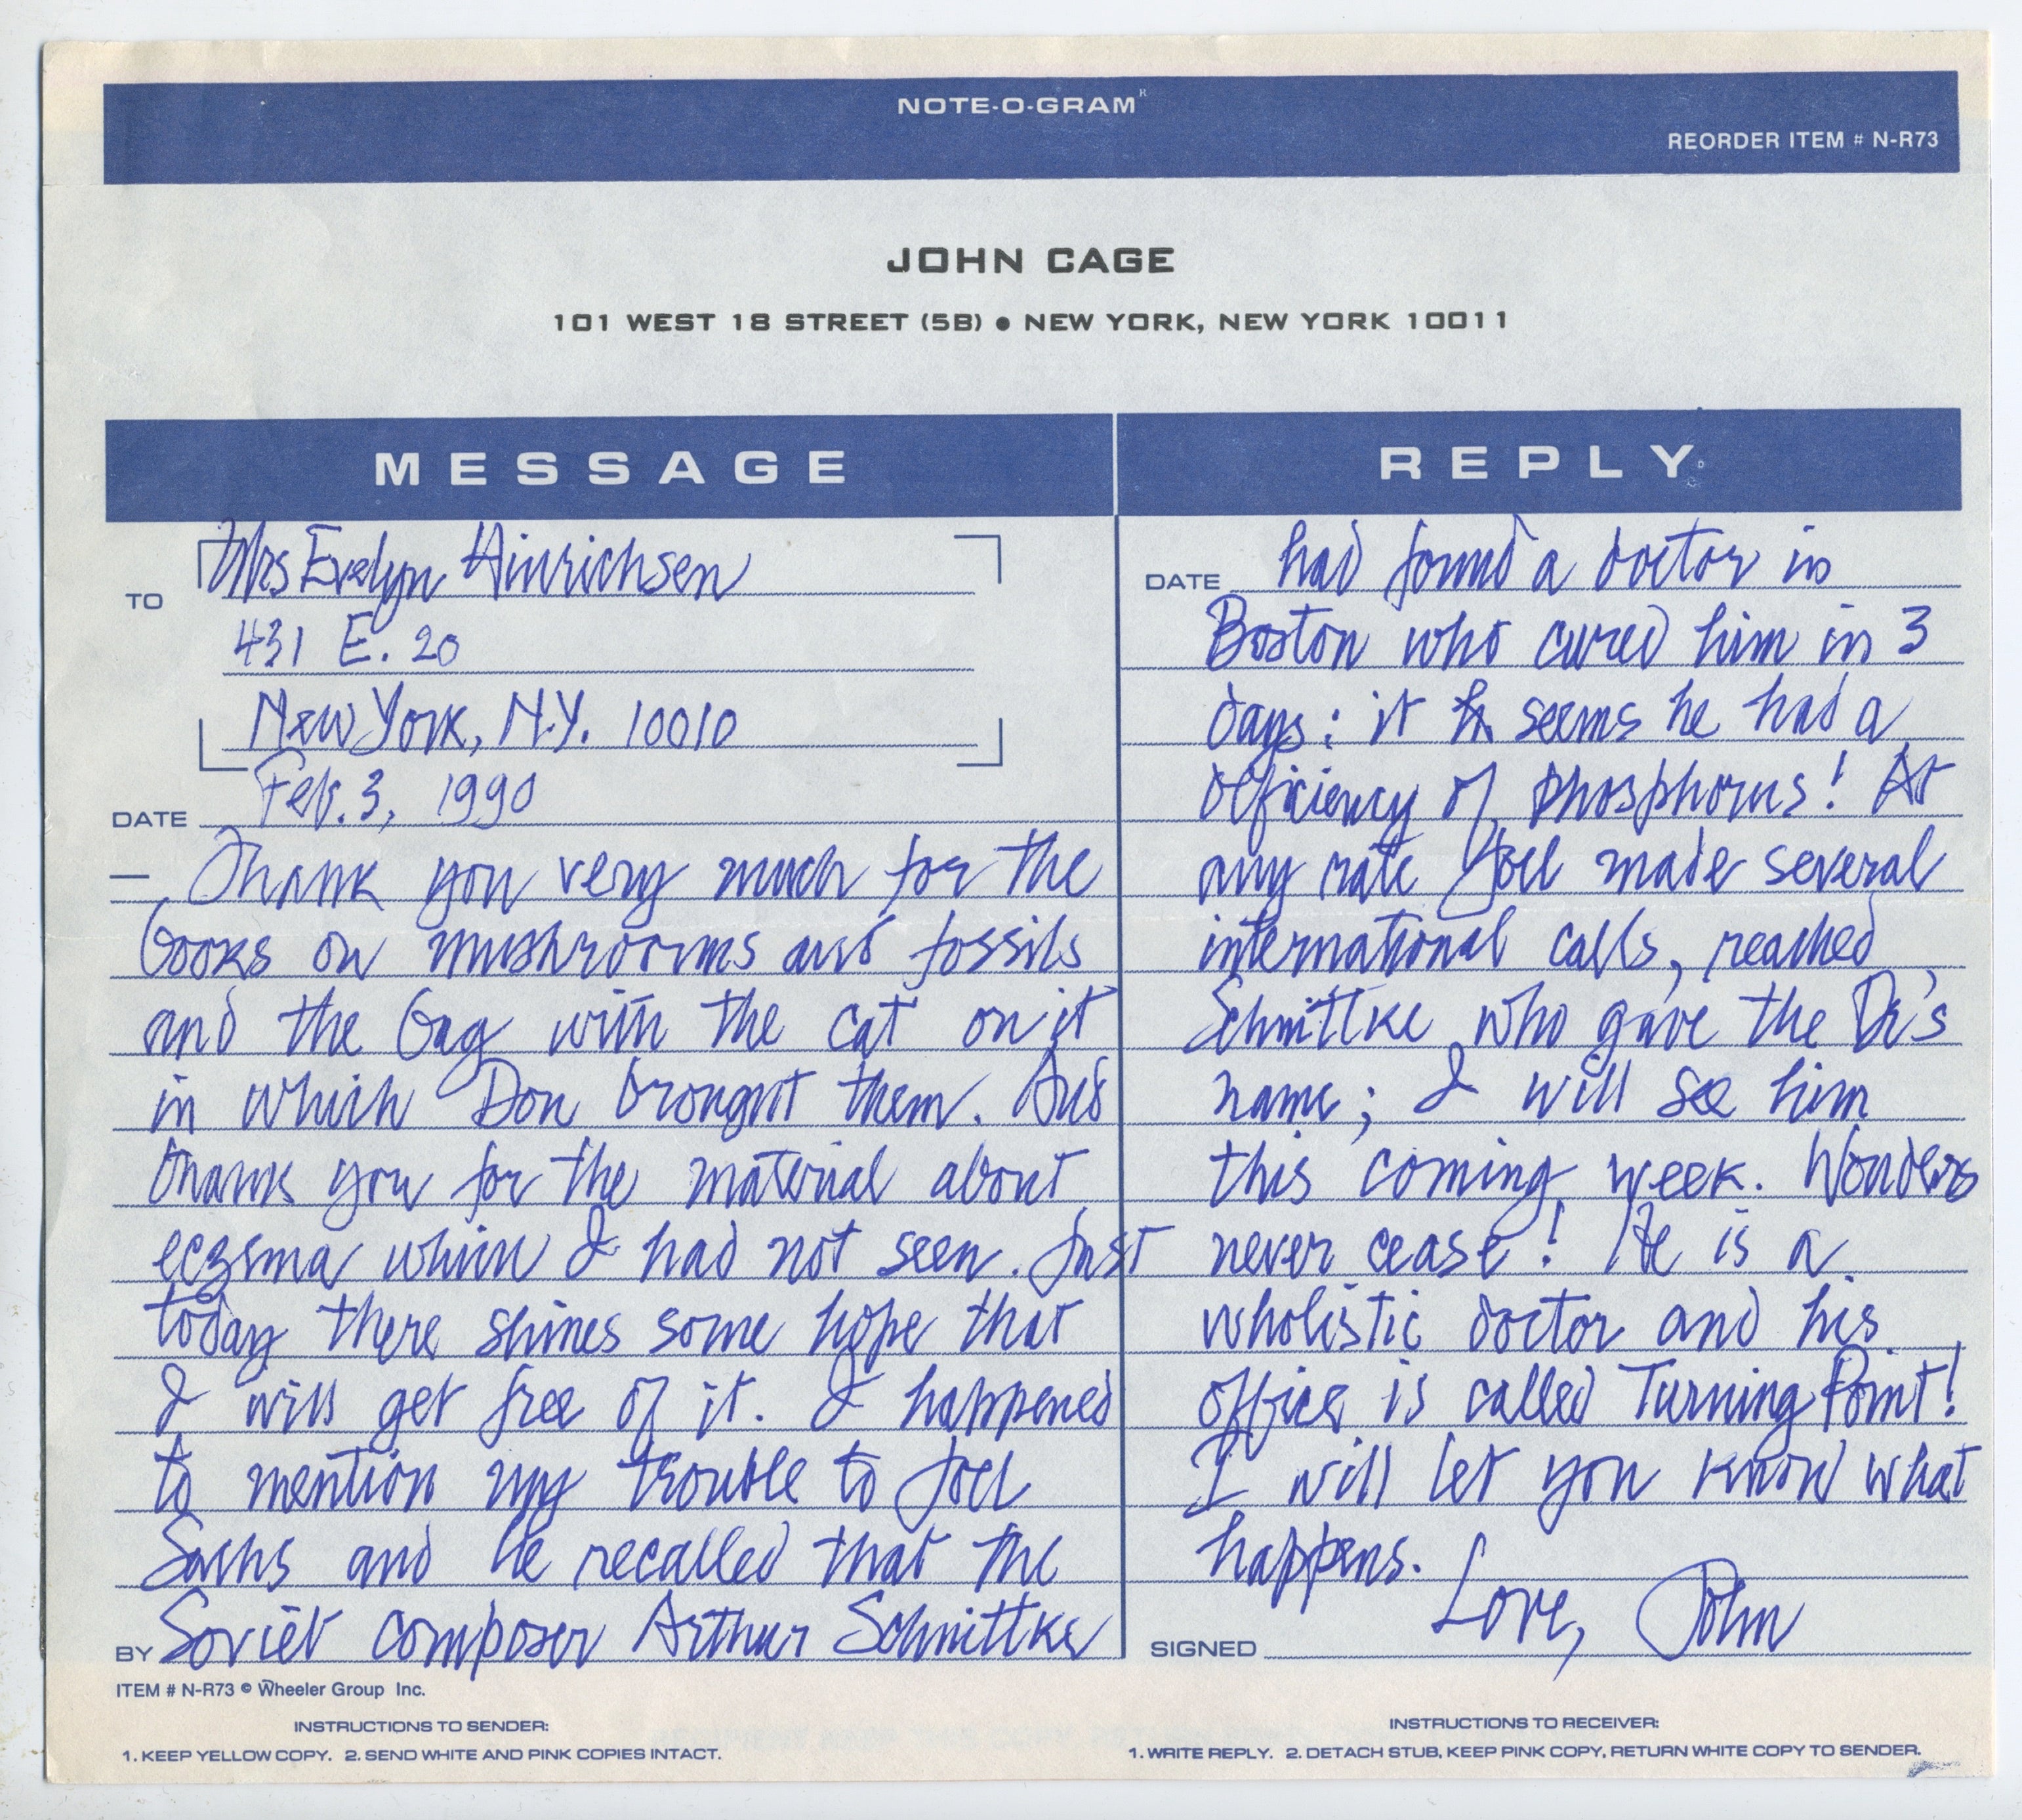 NOTE-O-GRAM R
REORDER ITEM # N-R73
JOHN CAGE
101 WEST 18 STREET (5B) ● NEW YORK, NEW YORK 10011
MESSAGE
TO
Mrs Evelyn Hinrichsen
431 E. 20
New York, N.Y. 10010
DATE Feb. 3, 1990
— Thank you very much for the
books on mushrooms and fossils
and the bag with the cat on it
in which Don brought them. And
thank you for the material about
eczema which I had not seen. Just
today there shines some hope that
I will get free of it. I happened
to mention my trouble to Joel
Sachs and he recalled that the
BY Soviet composer Arthur Schnittke
REPLY
DATE had found a doctor in
Boston who cured him in 3
days: it seems he had a
deficiency of phosphorus! At
any rate Joel made several
international calls, reached
Schnittke who gave the Dr's
name; I will see him
this coming week. Wonders
never cease! He is a
wholistic doctor and his
office is called Turning Point!
I will let you know what
happens.
Love, John
SIGNED
ITEM # N-R73 © Wheeler Group Inc.
INSTRUCTIONS TO SENDER:
1. KEEP YELLOW COPY. 2. SEND WHITE AND PINK COPIES INTACT.
INSTRUCTIONS TO RECEIVER:
1. WRITE REPLY. 2. DETACH STUB, KEEP PINK COPY, RETURN WHITE COPY TO SENDER.